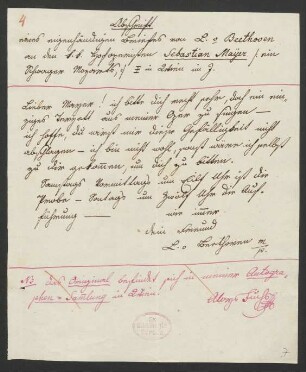 4
Abschrift
eines eigenhändigen Briefes von L. v. Beethoven
an den k.k. Hofopernsänger Sebastian Majer / ein
Schwager Mozarts, † in Wien in J.
Lieber Mayer! ich bitte dich recht sehr, das ein ein-
ziges Terzett aus meiner Oper zu singen –
ich hoffe, du wirst mir diese Gefälligkeit nicht
abschlagen – ich bin nicht wohl, sonst wäre ich selbst
zu dir gekommen, um dich zu bitten.
Samstags Vormittags um Eilf Uhr ist die
Probe – Sontags um zwölf Uhr die Auf-
führung —
wie immer
Dein Freund
L. v. Beethoven m/p.
NB. das Original befindet sich in meiner Autogra-
phen-Sammlung in Wien.
Aloys Fuchs
7